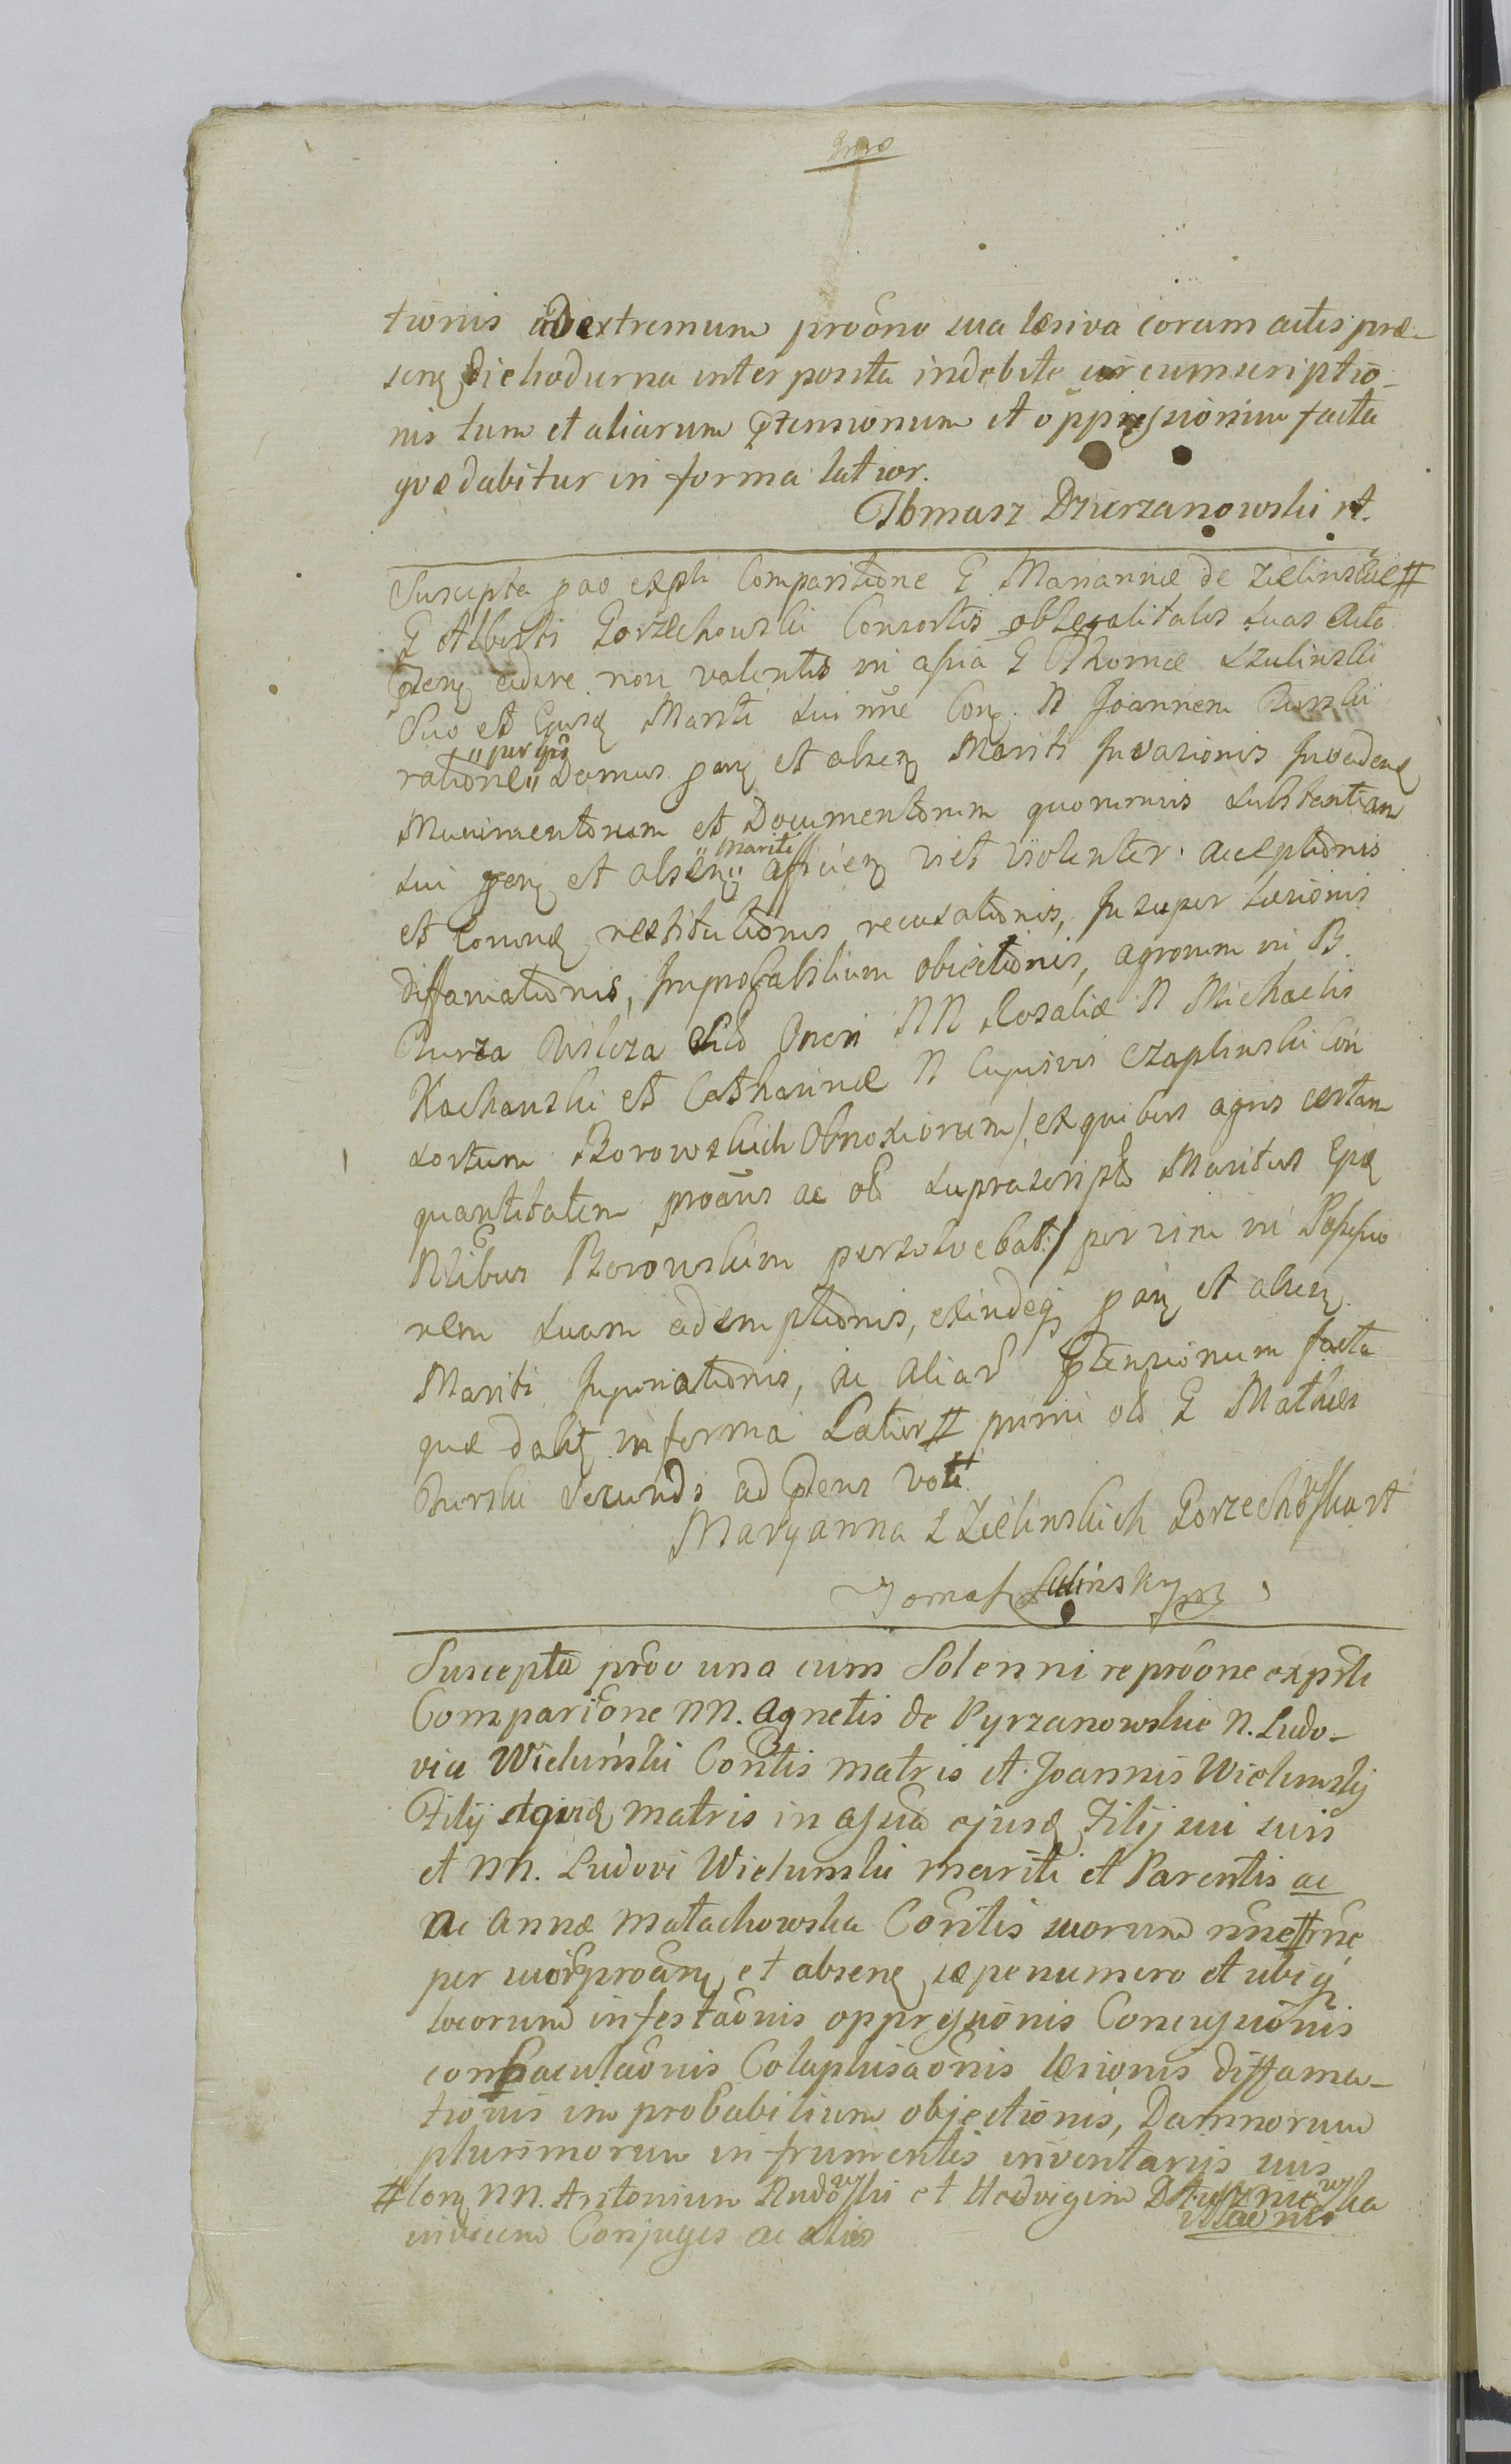 tionis ad extremum proōno sua læsiva coram actis præ-
senꝫ die hodierna interposita indebite circumscriptio-
nis tum et aliarum ptensionum et oppressionum facta
quæ dabitur in forma latior.
Thomasz Dzierzanowski rt.
Suscepta pao exprli Comparitione G Mariannæ de Zielinskie #
G Alberti Gorzechowski Consortis ob legalitates suas Acta
pteng adire non valentis in assia G Thomæ Szulinski
Suo et Ejusd Mariti sui nne Con. N Joannem Burski
ratione „ per ipm „ Domus pang et absenꝫ Mariti Invasionis
Munimentorum et Documentorum quorumvis substantiam
sui pang et absenꝫ „ Mariti „ afficien vi et violenter acceptionis
et Eorund restitutionis recusationis, Insuper Læsionis
diffamationis, Improbabilium obiectionis, agrorum in B.
Burza Wisloza Oneri NN Rosaliæ N Michaelis
Kochanski et Catharinæ N Czaplinski Con
sortum Borowskich Obnoxiorum /, ex quibus agris certam
quantitatem proāns ac ob suprascripts Maritus Ejusd
Nlibus Borowskim persolvebat / per vim in Possessio
nem suam ademptionis, exindeq pang et absenꝫ
Mariti Injuriationis, ac aliar ptensionum facta
quæ dabit in forma Latior # primi ob G Mathiæ
Burski Secundi ad ptens Voti
Maryanna z Zielinskich Gorzechowska rt
Tomasz Sulinsky mp
Suscepta proo una cum Solenni reprōone exprli
Comparitōne NN. Agnetis de Pyrzanowskie N. Ludo-
vici Wielunski Contis matris et Joannis Wielunskij
Filij atque matris in assia ejusd Filij sui suis
et NN. Ludovi Wielunski mariti et Parentis ac
ac Annæ Małachowska Contis suorum nne # rne
per proāng et absenꝫ sæpenumero et ubiq
locorum infestaōnis oppressionis Concussionis
conbaculaōnis Colaphisaōnis læsionis diffama-
tionis improbabilium objectionis, Damnorum
plurimorum in frumentis inventarijs suis
# Con NN. Antonium Rudowski et Hedvigim
invicem Conjuges ac alios